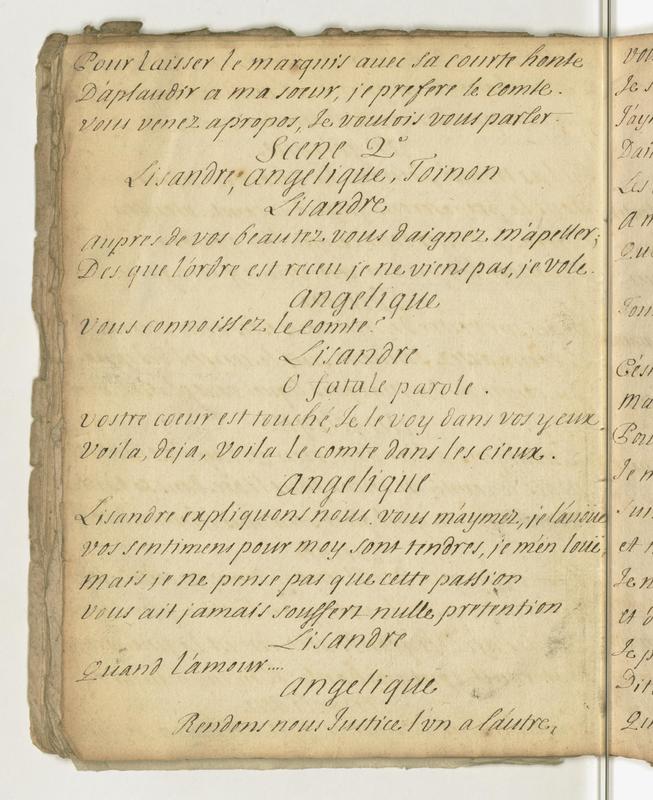 Pour laisser le marquis avec sa courte honte
D'aplaudir a ma soeur, je prefere le comte.
vous venez apropos, Je voulois vous parler.
Scene 2e
Lisandre, angelique, Toinon
Lisandre
aupres de vos beautez vous daignez m'apeller;
Des que l'ordre est receu je ne viens pas, je vole.
angelique
vous connoissez le comte?
Lisandre
O fatale parole.
vostre coeur est touché, Je le voy dans vos yeux.
voila, deja, voila le comte dans les cieux.
angelique
Lisandre expliquons nous. vous m'aymez, je l'auoüe
vos sentimens pour moy sont tendres, je m'en loüe,
mais je ne pense pas que cette passion
vous ait jamais souffert nulle pretention
Lisandre
Quand l'amour....
angelique
Rendons nous Justice l'vn a l'autre,